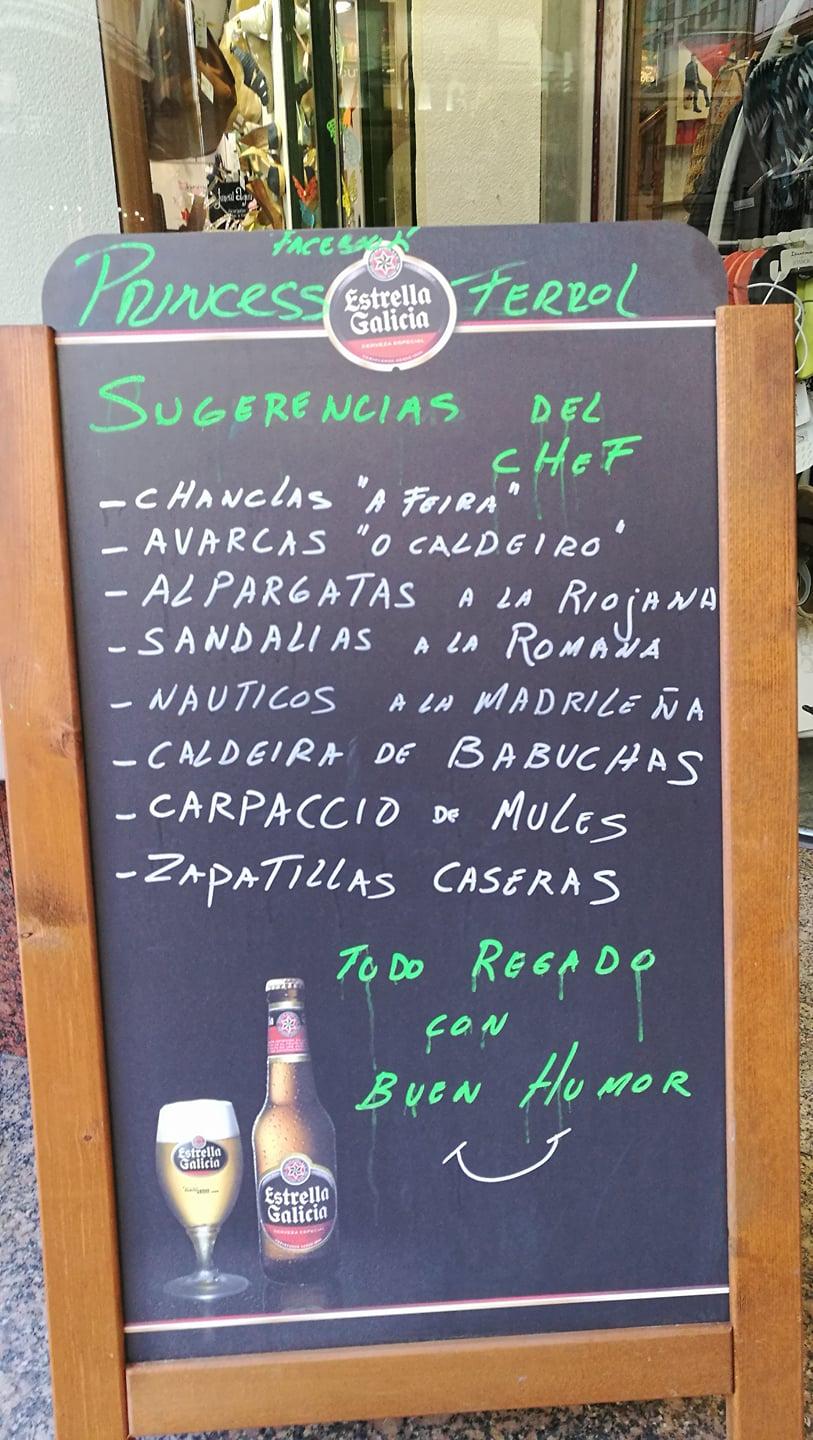 FACEBOOK
PRINCESS FERROL
Estrella
Galicia
CERVEZA ESPECIAL
SUGERENCIAS DEL
CHEF
- CHANCLAS "A FEIRA"
- AVARCAS "O CALDEIRO"
- ALPARGATAS A LA RIOJANA
- SANDALIAS A LA ROMANA
- NAUTICOS A LA MADRILEÑA
- CALDEIRA DE BABUCHAS
- CARPACCIO DE MULES
- ZAPATILLAS CASERAS
TODO REGADO
CON
BUEN HUMOR
Estrella
Galicia
Estrella
Galicia
CERVEZA ESPECIAL